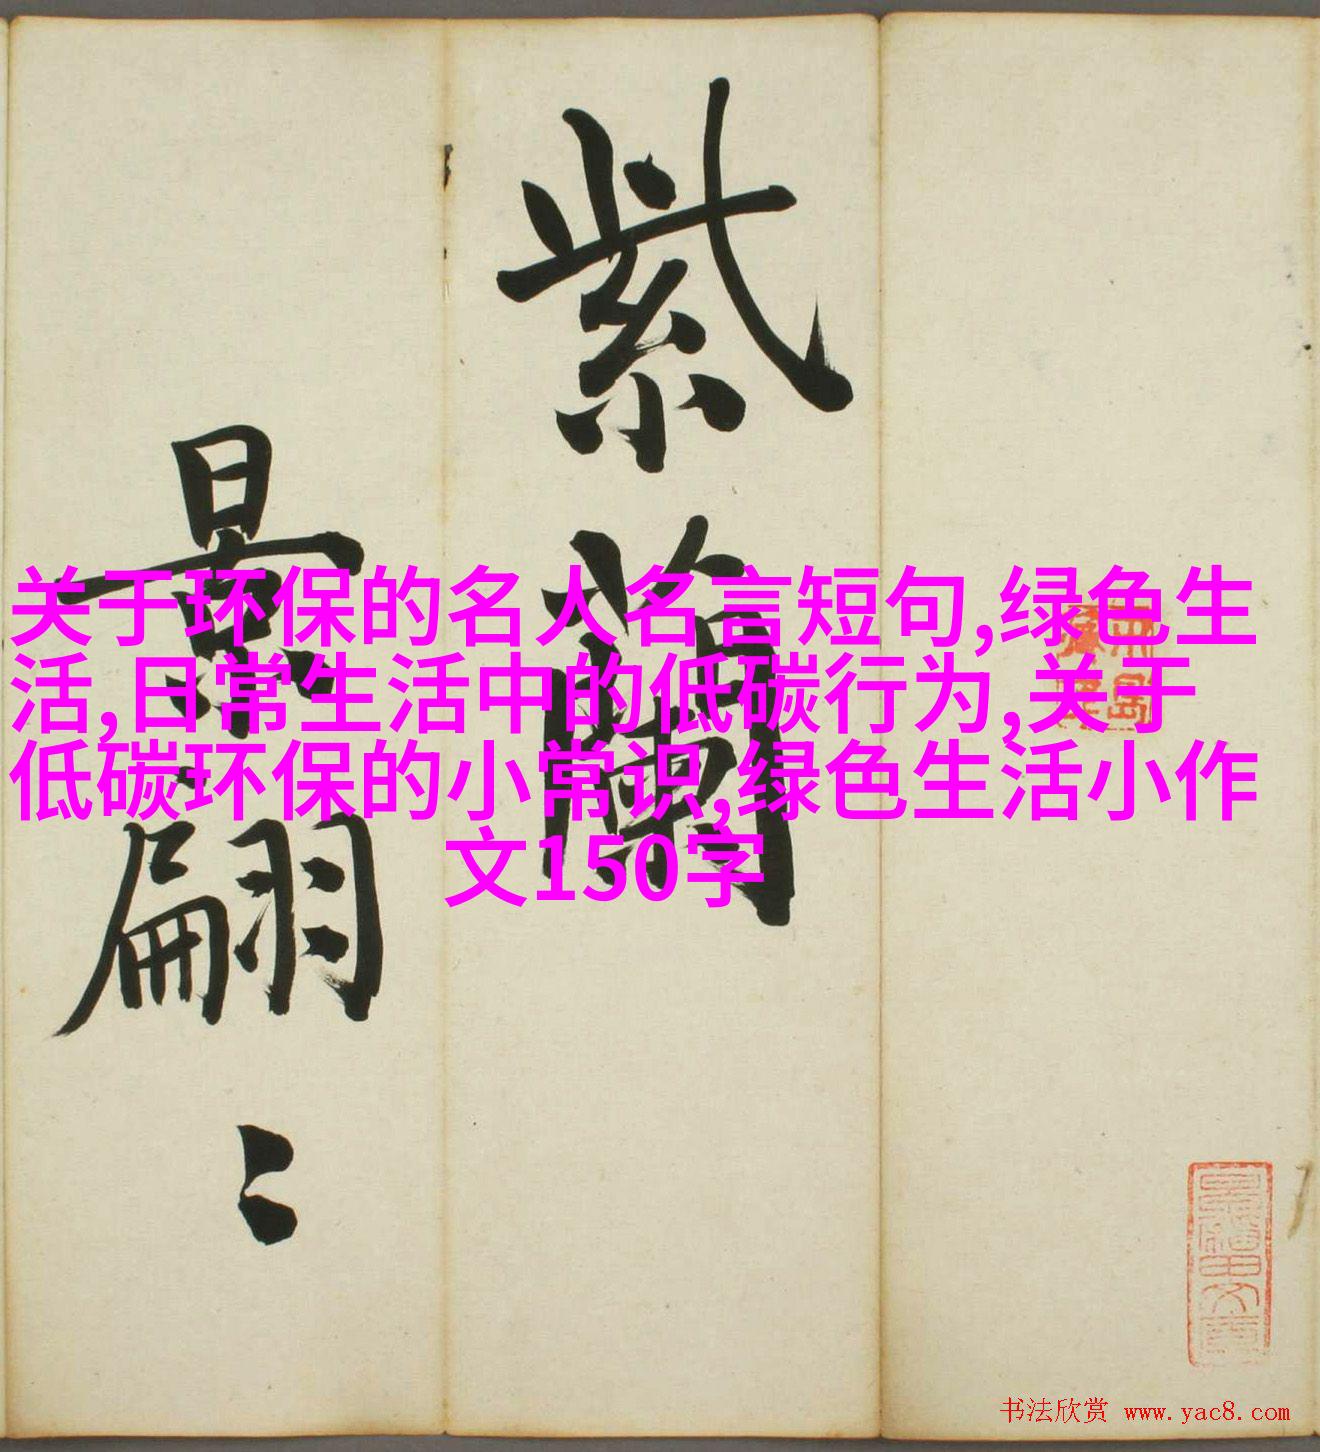 紫蘭
景翩〻
关于环保的名人名言短句,绿色生
活,日常生活中的低碳行为,关于
低碳环保的小常识,绿色生活小作
文150字
书法欣赏 www.yac8.com